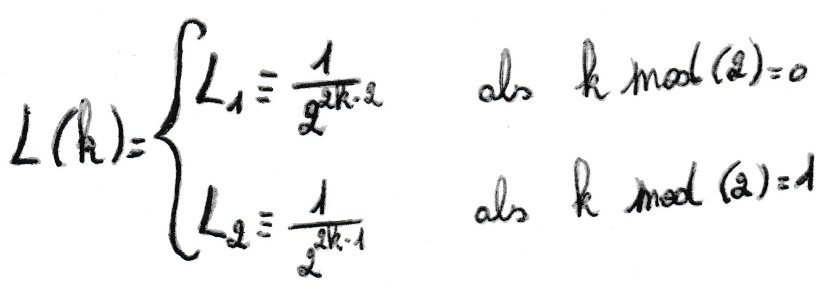 L(k) = { L₁ ≡ 1/2^(2k-2) als k mod (2) = 0
L₂ ≡ 1/2^(2k-1) als k mod (2) = 1